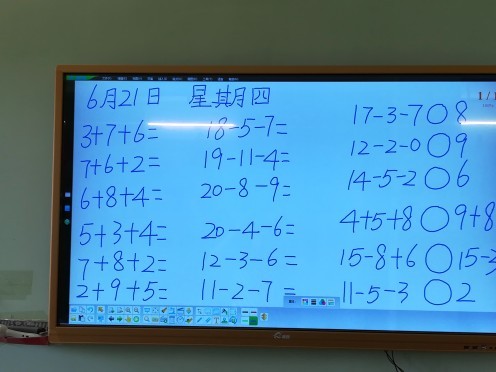 6月21日 星期四
3+7+6= 18-5-7= 17-3-7○8
7+6+2= 19-11-4= 12-2-0○9
6+8+4= 20-8-9= 14-5-2○6
5+3+4= 20-4-6= 4+5+8○9+8
7+8+2= 12-3-6= 15-8+6○15-3
2+9+5= 11-2-7= 11-5-3○2